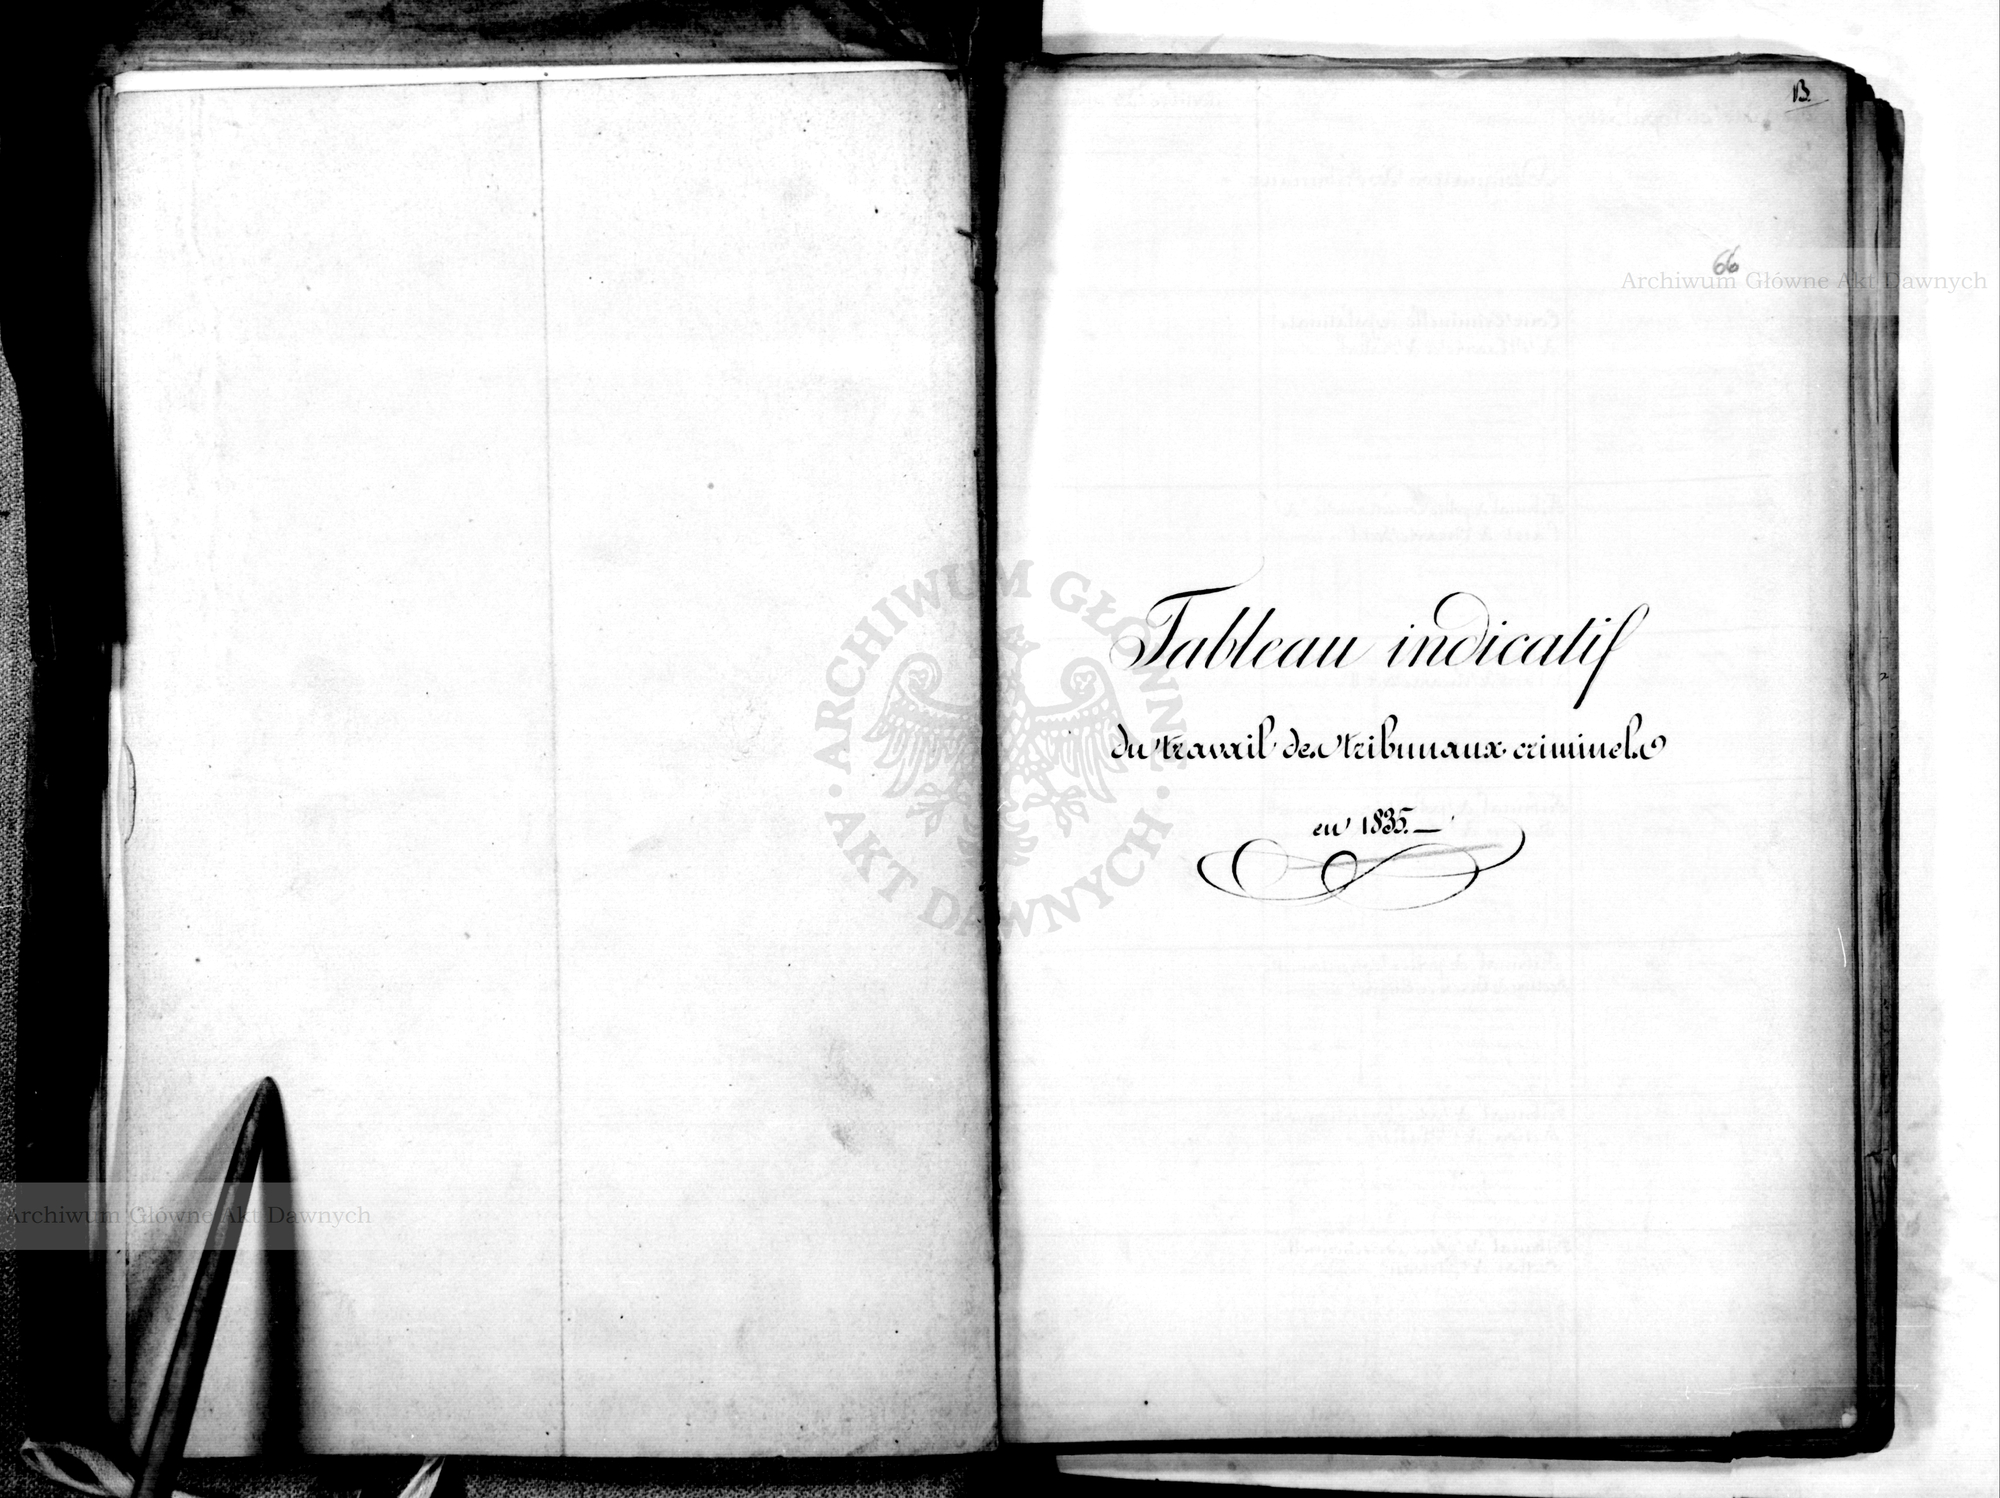 B.
66
Archiwum Główne Akt Dawnych
Tableau indicatif
du travail des tribunaux criminels
en 1835.
ARCHIWUM GŁÓWNE
AKT DAWNYCH
Archiwum Główne Akt Dawnych